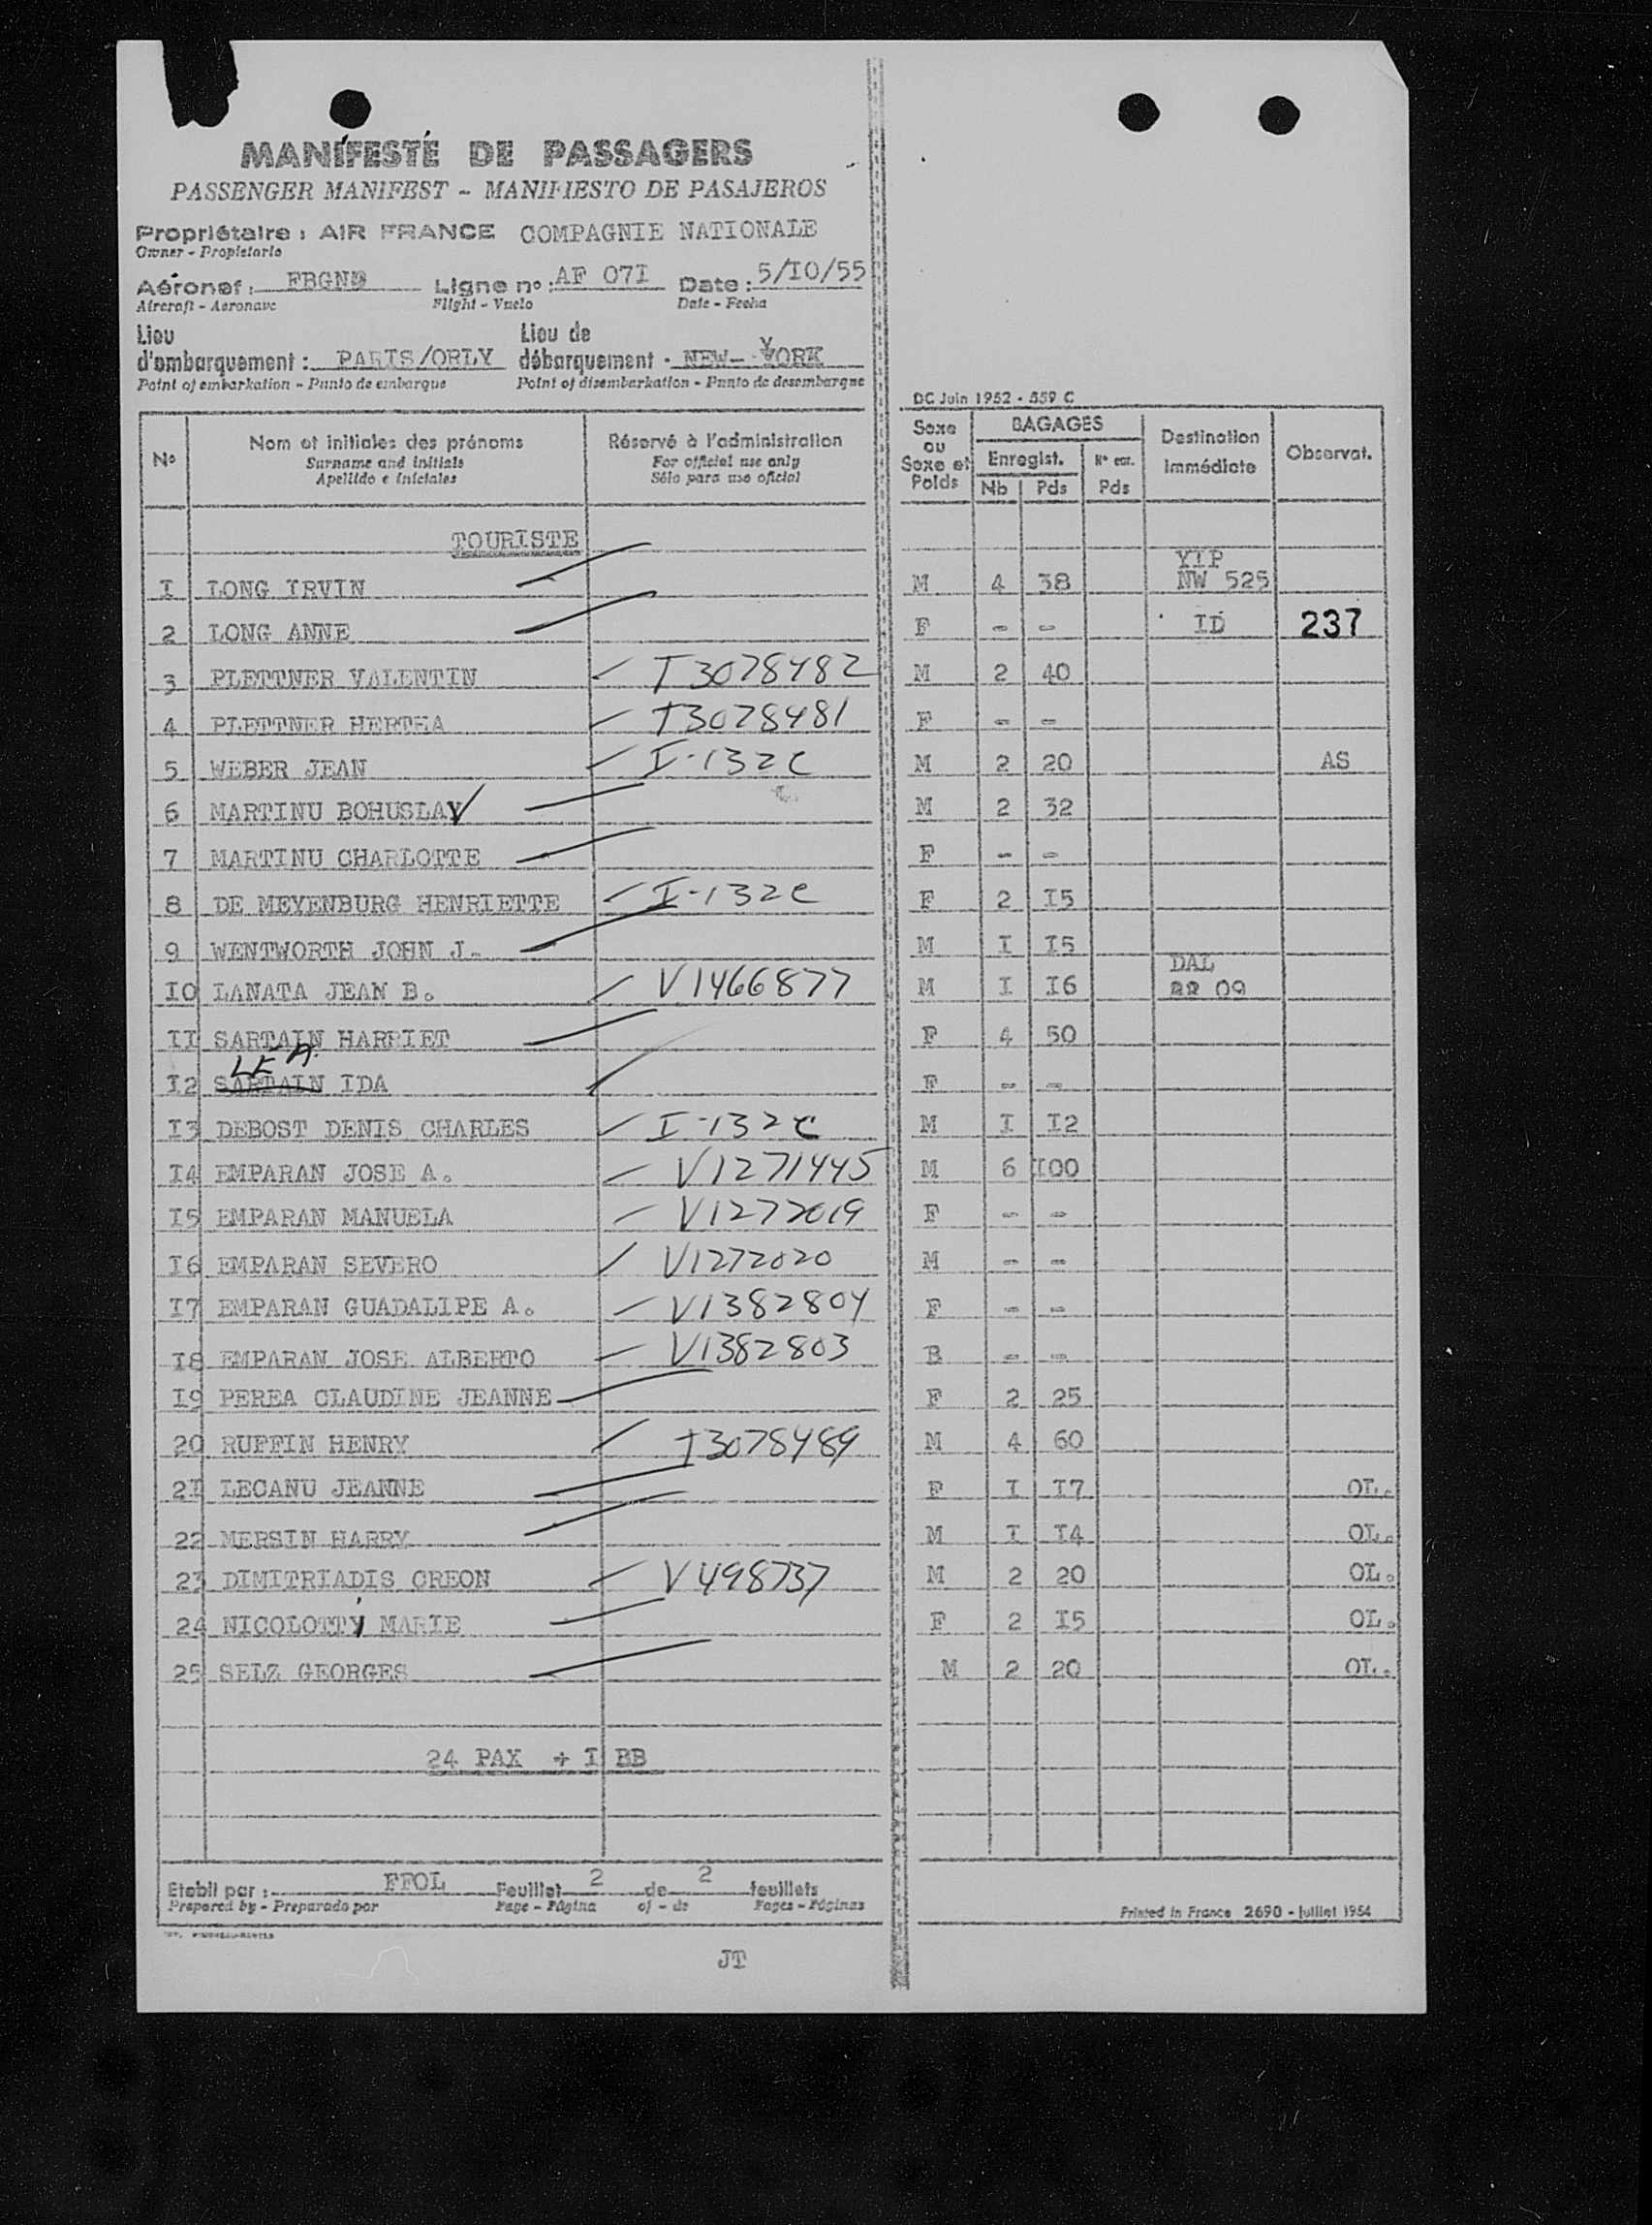 MANIFESTE DE PASSAGERS
PASSENGER MANIFEST - MANIFIESTO DE PASAJEROS
Propriétaire : AIR FRANCE COMPAGNIE NATIONALE
Owner - Propietario
Aéronef : FBGND Ligne no : AF 07I Date : 5/I0/55
Aircraft - Aeronave Flight - Vuelo Date - Fecha
Lieu d'embarquement : PARIS/ORLY Lieu de débarquement - NEW-YORK
Point of embarkation - Punto de embarque Point of disembarkation - Punto de desembarque
DC Juin 1952 - 559 C
No Nom et initiales des prénoms Réservé à l'administration Sexe ou Sexe et Poids BAGAGES Destination Immédiate Observat.
Surname and initials For official use only Enregist. No enr.
Apellido e iniciales Sólo para uso oficial Nb Pds Pds
TOURISTE
YIP
I LONG IRVIN M 4 38 NW 525
2 LONG ANNE F - - ID 237
3 PLETTNER VALENTIN T3078482 M 2 40
4 PLETTNER HERTHA T3078481 F - -
5 WEBER JEAN I-132C M 2 20 AS
6 MARTINU BOHUSLAV M 2 32
7 MARTINU CHARLOTTE F - -
8 DE MEYENBURG HENRIETTE I-132C F 2 I5
9 WENTWORTH JOHN J. M I I5
DAL
I0 LANATA JEAN B. V1466877 M I I6 09
II SARTAIN HARRIET F 4 50
LEA
I2 SARTAIN IDA F - -
I3 DEBOST DENIS CHARLES I-132C M I I2
I4 EMPARAN JOSE A. V1271445 M 6 I00
I5 EMPARAN MANUELA V1272019 F - -
I6 EMPARAN SEVERO V1272020 M - -
I7 EMPARAN GUADALIPE A. V1382804 F - -
I8 EMPARAN JOSE ALBERTO V1382803 B - -
I9 PEREA CLAUDINE JEANNE F 2 25
20 RUFFIN HENRY T3078489 M 4 60
2I LECANU JEANNE F I I7 OL.
22 MERSIN HARRY M I I4 OL.
23 DIMITRIADIS CREON V498737 M 2 20 OL.
24 NICOLOTTI MARIE F 2 I5 OL.
25 SELZ GEORGES M 2 20 OL.
24 PAX + I BB
Etabli par : FFOL Feuillet 2 de 2 feuillets
Prepared by - Preparado por Page - Página of - de Pages - Páginas
Printed in France 2690 - Juillet 1954
JT